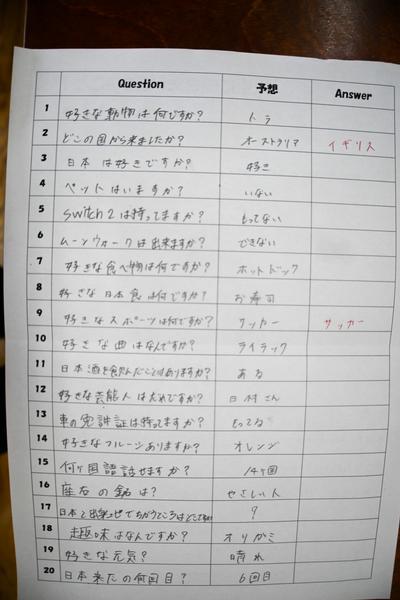 Question 予想 Answer
1 好きな動物は何ですか? トラ
2 どこの国から来ましたか? オーストラリア イギリス
3 日本は好きですか? 好き
4 ペットはいますか? いない
5 Switch2は持ってますか? もってない
6 ムーンウォークは出来ますか? できない
7 好きな食べ物は何ですか? ホットドック
8 好きな日本食は何ですか? お寿司
9 好きなスポーツは何ですか? サッカー サッカー
10 好きな曲はなんですか? ライラック
11 日本酒を飲んだことはありますか? ある
12 好きな芸能人はだれですか? 日村さん
13 車の免許証は持ってますか? もってる
14 好きなフルーツありますか? オレンジ
15 何ヶ国語話せますか? 14ヶ国
16 座右の銘は? やさしい人
17 日本と出身でちがうところはどこですか ?
18 趣味はなんですか? オリガミ
19 好きな元気? 晴れ
20 日本来たの何回目? 6回目